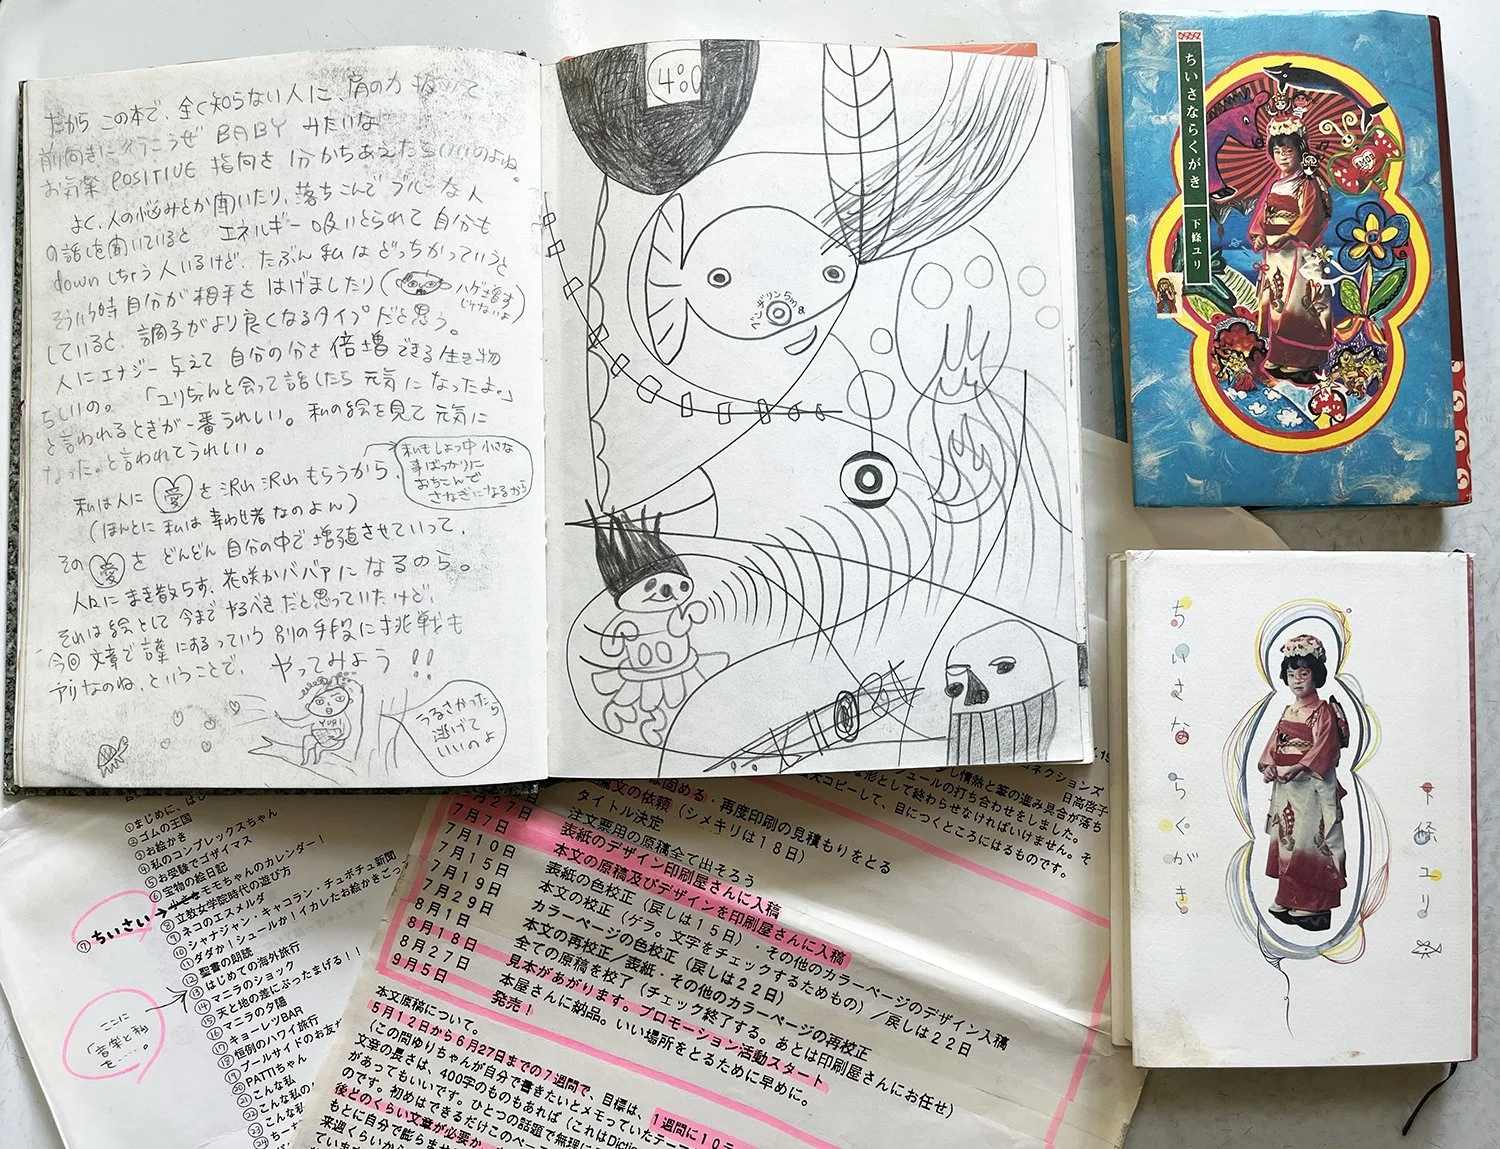 だから この本で、全く知らない人に、肩の力 抜いて
前向きに行こうぜ BABY みたいな
お気楽 POSITIVE 指向を 1分かちあえたらいいのよね。
よく、人の悩みとか聞いたり、落ちこんで ブルーな人
の話しを聞いていると エネルギー吸いとられて 自分も
down しちゃう人いるけど、たぶん 私は どっちかっていうと
そういう時 自分が 相手を はげましたり(
ハゲ増す
じゃないよ)
していると、調子がより良くなるタイプだと思う。
人にエナジー与えて 自分の分を 倍増 できる生き物
らしいの。「ユリちゃんと会って話したら 元気になったよ。」
と言われるときが一番うれしい。私の絵を見て 元気に
なった。と言われてうれしい。
私もしょっ中 小さな
事ばっかりに
おちこんで
さなぎになるから
私は人に 愛 を 沢山 沢山 もらうから、
(ほんとに 私は 幸わせ者 なのよん)
その 愛 を どんどん 自分の中で 増殖させていって、
人々に まき散らす、花咲かババアに なるのら。
それは絵として 今まで やるべきだと思っていたけど、
今回 文章で 謹 にあるっていう 別の手段に 挑戦も
アリなのね、ということで、 やってみよう !!
YURI
うるさかったら
逃げて
いいのよ
ちいさならくがき
下條ユリ
ちいさならくがき
下條ユリ
①まじめに、はじ
②ゴムの王国
③お絵かき
④私のコンプレックスちゃん
⑤お受験でゴザイマス
⑥宝物の絵日記
⑦ちいさい→
モモちゃんのカレンダー!
⑧立教女学院時代の遊び方
⑨ネコのエスメルダ
⑩シャナジャン・キャコラン・チュポチュポ新聞
⑪ダダか!シュールか!イカしたお絵かきごっ
⑫聖書の朗読
⑬はじめての海外旅行
⑭マニラのショック
⑮天と地の差にぶったまげる!!
⑯マニラの夕陽
⑰キョーレツBAR
⑱恒例のハワイ旅行
⑲プールサイドのお友
⑳PATTIちゃん
㉑こんな私
㉒こんな私の
㉓こんな私
ここに
「音楽と私
を……。
ネクションズ
日高啓子
7月7日
7月10日
7月15日
7月19日
7月29日
8月1日
8月18日
8月27日
9月5日
文の依頼(シメキリは18日)
タイトル決定
再度印刷の見積もりをとる
注文票用の原稿全て出そろう
表紙のデザイン印刷屋さんに入稿
本文の原稿及びデザインを印刷屋さんに入稿
表紙の色校正(戻しは15日)・その他のカラーページのデザイン入稿
本文の校正(ゲラ。文字をチェックするためもの)/戻しは22日
カラーページの色校正(戻しは22日)
本文の再校正/表紙・その他のカラーページの再校正
全ての原稿を校了(チェック終了する。あとは印刷屋さんにお任せ)
見本があがります。プロモーション活動スタート
本屋さんに納品。いい場所をとるために早めに。
発売!
本文原稿について。
5月12日から6月27日までの7週間で、目標は、1週間に10テ
(この間ゆりちゃんが自分で書きたいとメモっていたテー
文章の長さは、400字のものもあれば(これはDictio
があってもいいです。ひとつの話題で無理に
のです。初めはできるだけこのペー
後どのくらい文章が必要か
もとに自分で膨らま
来週くらいから